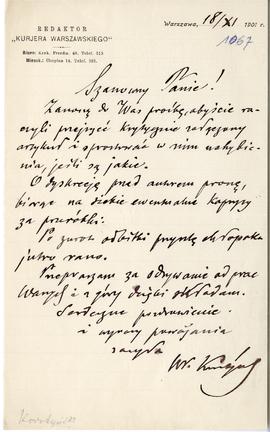 REDAKTOR
„KURJERA WARSZAWSKIEGO"
Biuro: Krak. Przedm. 40. Telef. 513
Mieszk.: Chopina 14. Telef.
Warszawa, 18/XI 1901 r.
1067
Szanowny Panie!
Zanoszę do Was prośbę, abyście ra-
czyli przejrzeć krytycznie załączony
artykuł i sprostować w nim uchybie-
nia, jeśli są jakie.
O dyskrecję przed autorem proszę,
biorąc na siebie ewentualne
za poprawki.
Po zwrot odbitki przyślę chłopaka
jutro rano.
Przepraszam za odrywanie od prac
Waszych i z góry dzięki składam.
Serdeczne pozdrowienie
i wyrazy poważania
załącza
Wł.